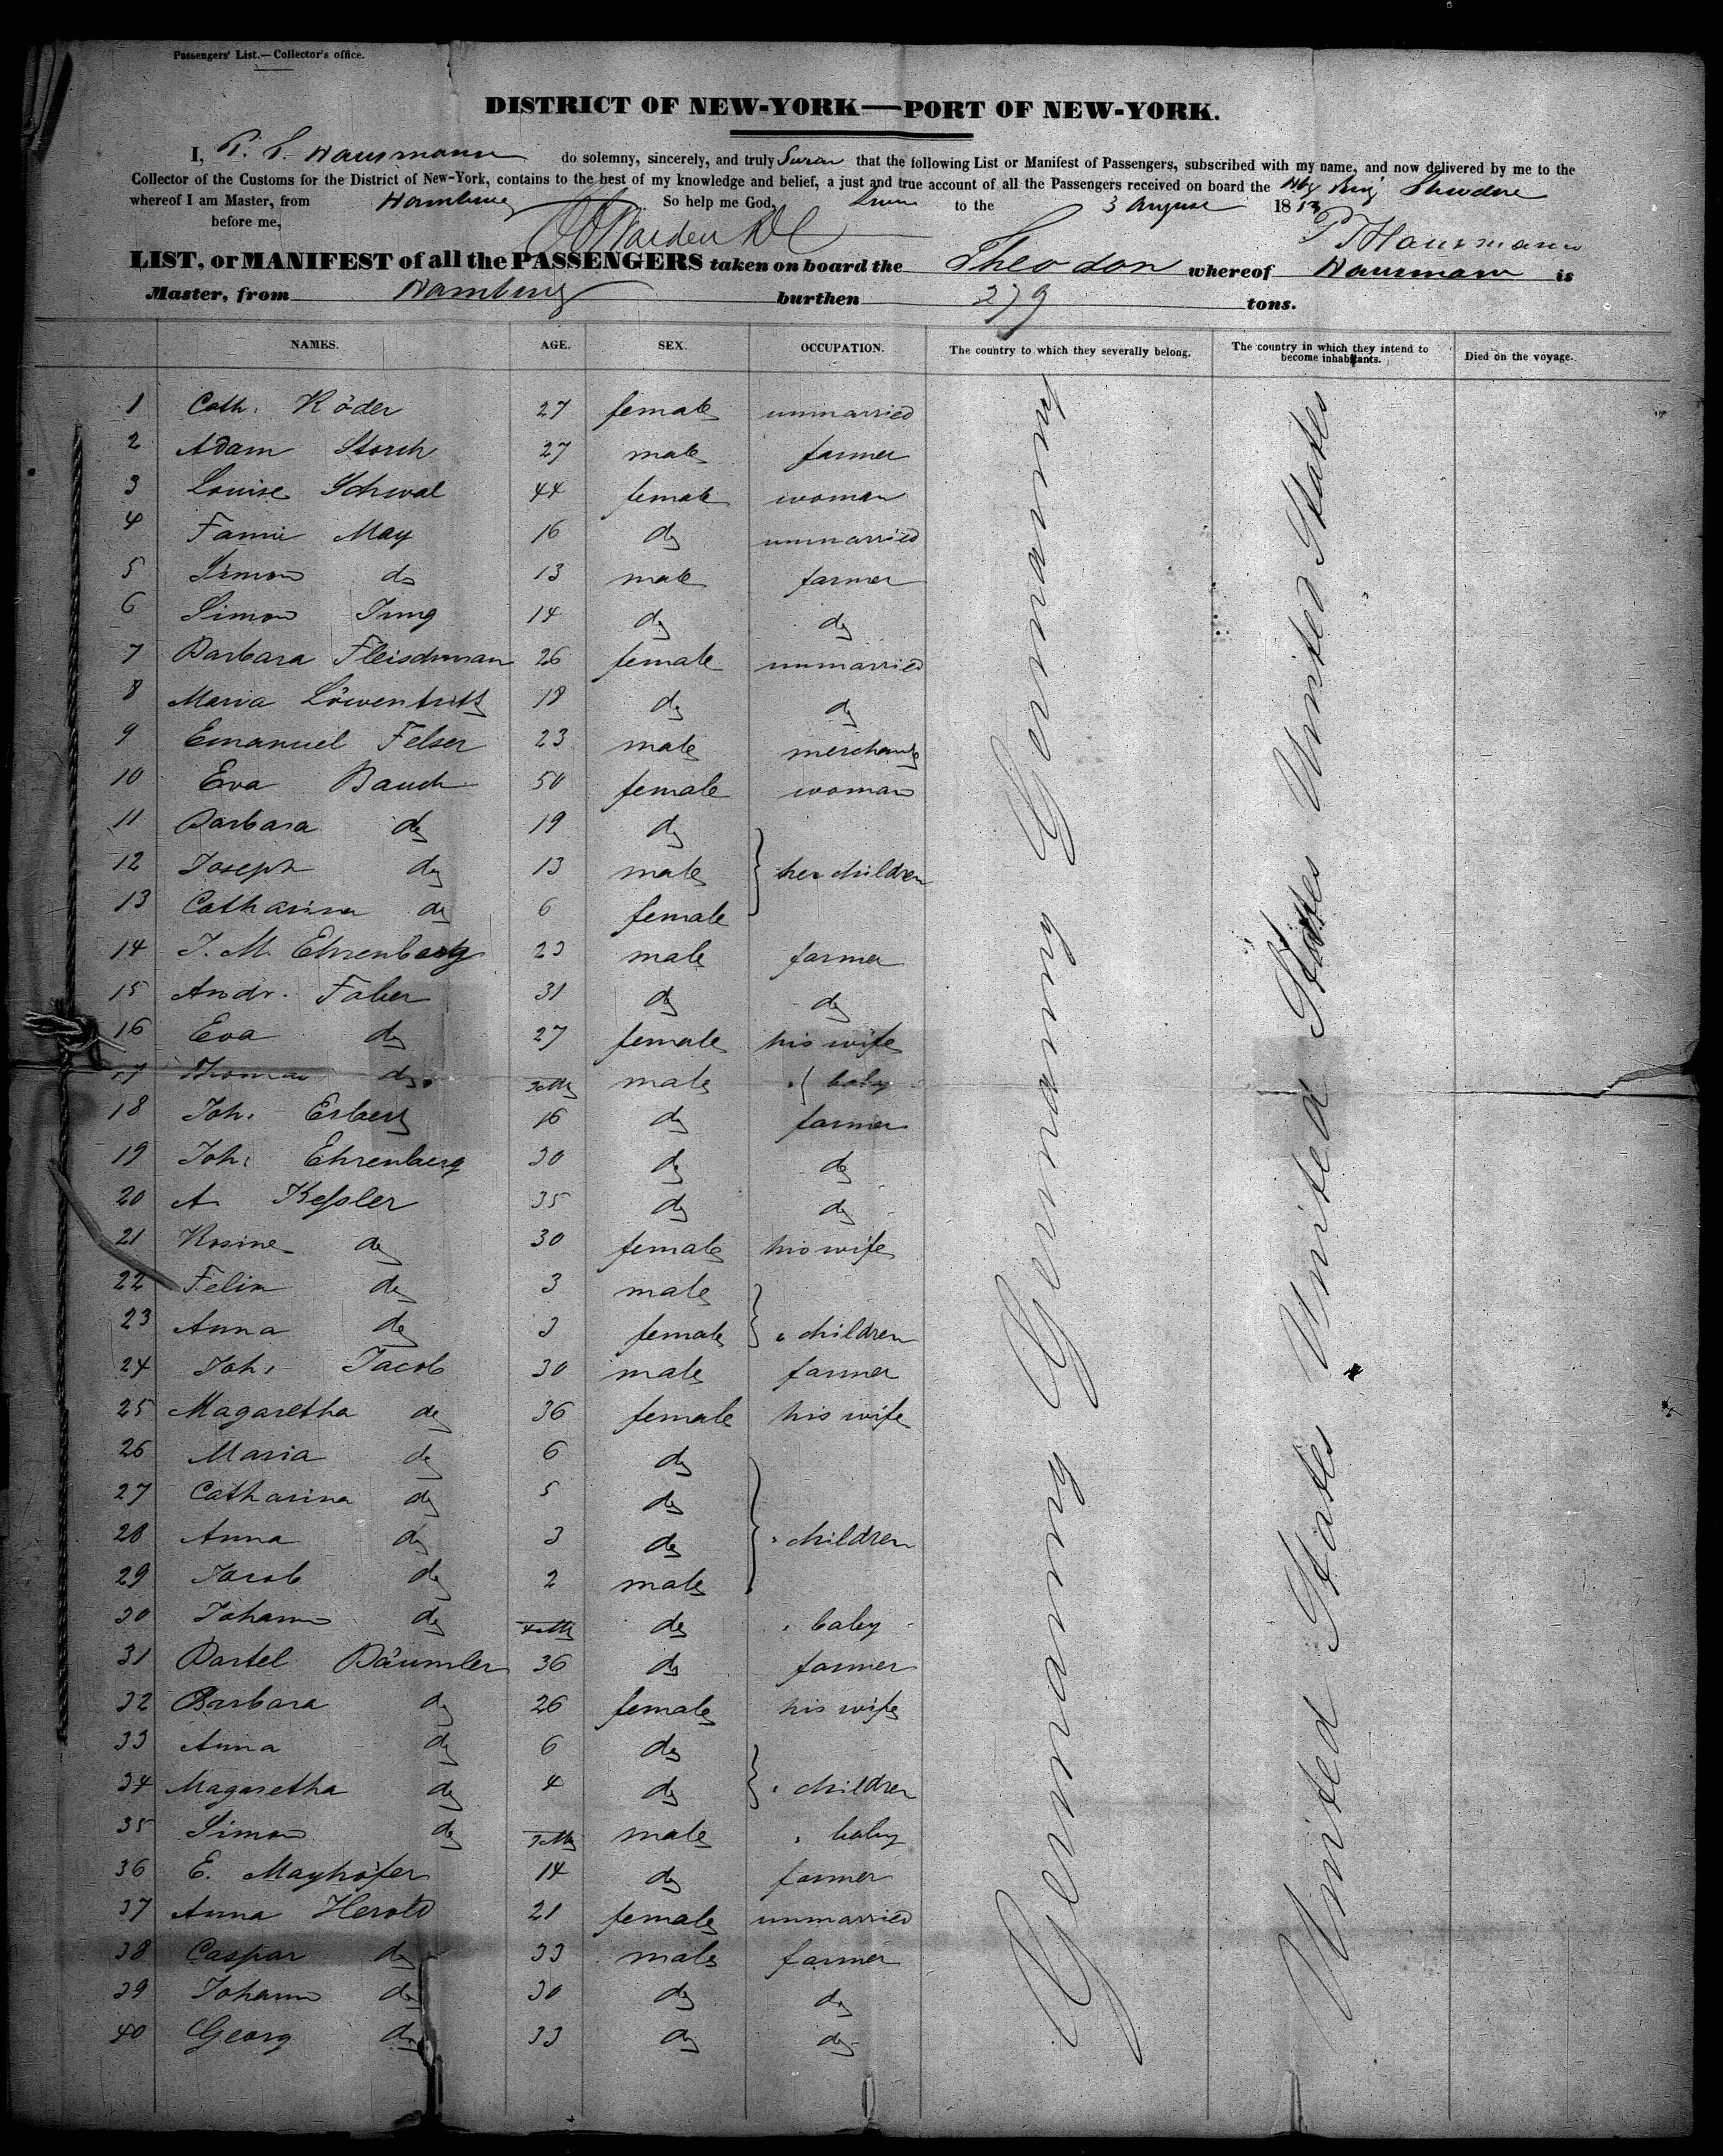 Passengers' List.—Collector's office.
DISTRICT OF NEW-YORK—PORT OF NEW-YORK.
I, Hausmann do solemny, sincerely, and truly Swear that the following List or Manifest of Passengers, subscribed with my name, and now delivered by me to the
Collector of the Customs for the District of New-York, contains to the best of my knowledge and belief, a just and true account of all the Passengers received on board the Theodore
whereof I am Master, from Hamburg So help me God, Sworn to the 3 August 1853
before me,
LIST, or MANIFEST of all the PASSENGERS taken on board the Theodor whereof Hausmann is
Master, from Hamburg burthen 279 tons.
NAMES. AGE. SEX. OCCUPATION. The country to which they severally belong. The country in which they intend to become inhabitants. Died on the voyage.
1 Cath. Röder 27 female unmarried
2 Adam Storch 27 male farmer
3 Louise Schwal 44 female woman
4 Fanni May 16 do unmarried
5 Simon do 13 male farmer
6 Simon Jung 14 do do
7 Barbara Fleischman 26 female unmarried
8 Maria Löwentritt 18 do do
9 Emanuel Felser 23 male merchant
10 Eva Bauch 50 female woman
11 Barbara do 19 do
12 Joseph do 13 male her children
13 Catharina do 6 female
14 J. M. Ehrenberg 23 male farmer
15 Andr. Faber 31 do do
16 Eva do 27 female his wife
17 Thomas do male baby
18 Joh. Erberg 16 do farmer
19 Joh. Ehrenberg 30 do do
20 A. Keßler 35 do do
21 Rosine do 30 female his wife
22 Felix do 3 male
23 Anna do 3 female " children
24 Joh. Jacob 30 male farmer
25 Magaretha do 36 female his wife
26 Maria do 6 do
27 Catharina do 5 do
28 Anna do 3 do " children
29 Jacob do 2 male
30 Johann do do " baby
31 Bartel Bäumler 36 do farmer
32 Barbara do 26 female his wife
33 Anna do 6 do
34 Magaretha do 4 do " children
35 Simon do male " baby
36 E. Mayhöfer 14 do farmer
37 Anna Herold 21 female unmarried
38 Caspar do 33 male farmer
39 Johann do 30 do do
40 Georg do 33 do do
Germany Germany Germany Germany
United States United States United States